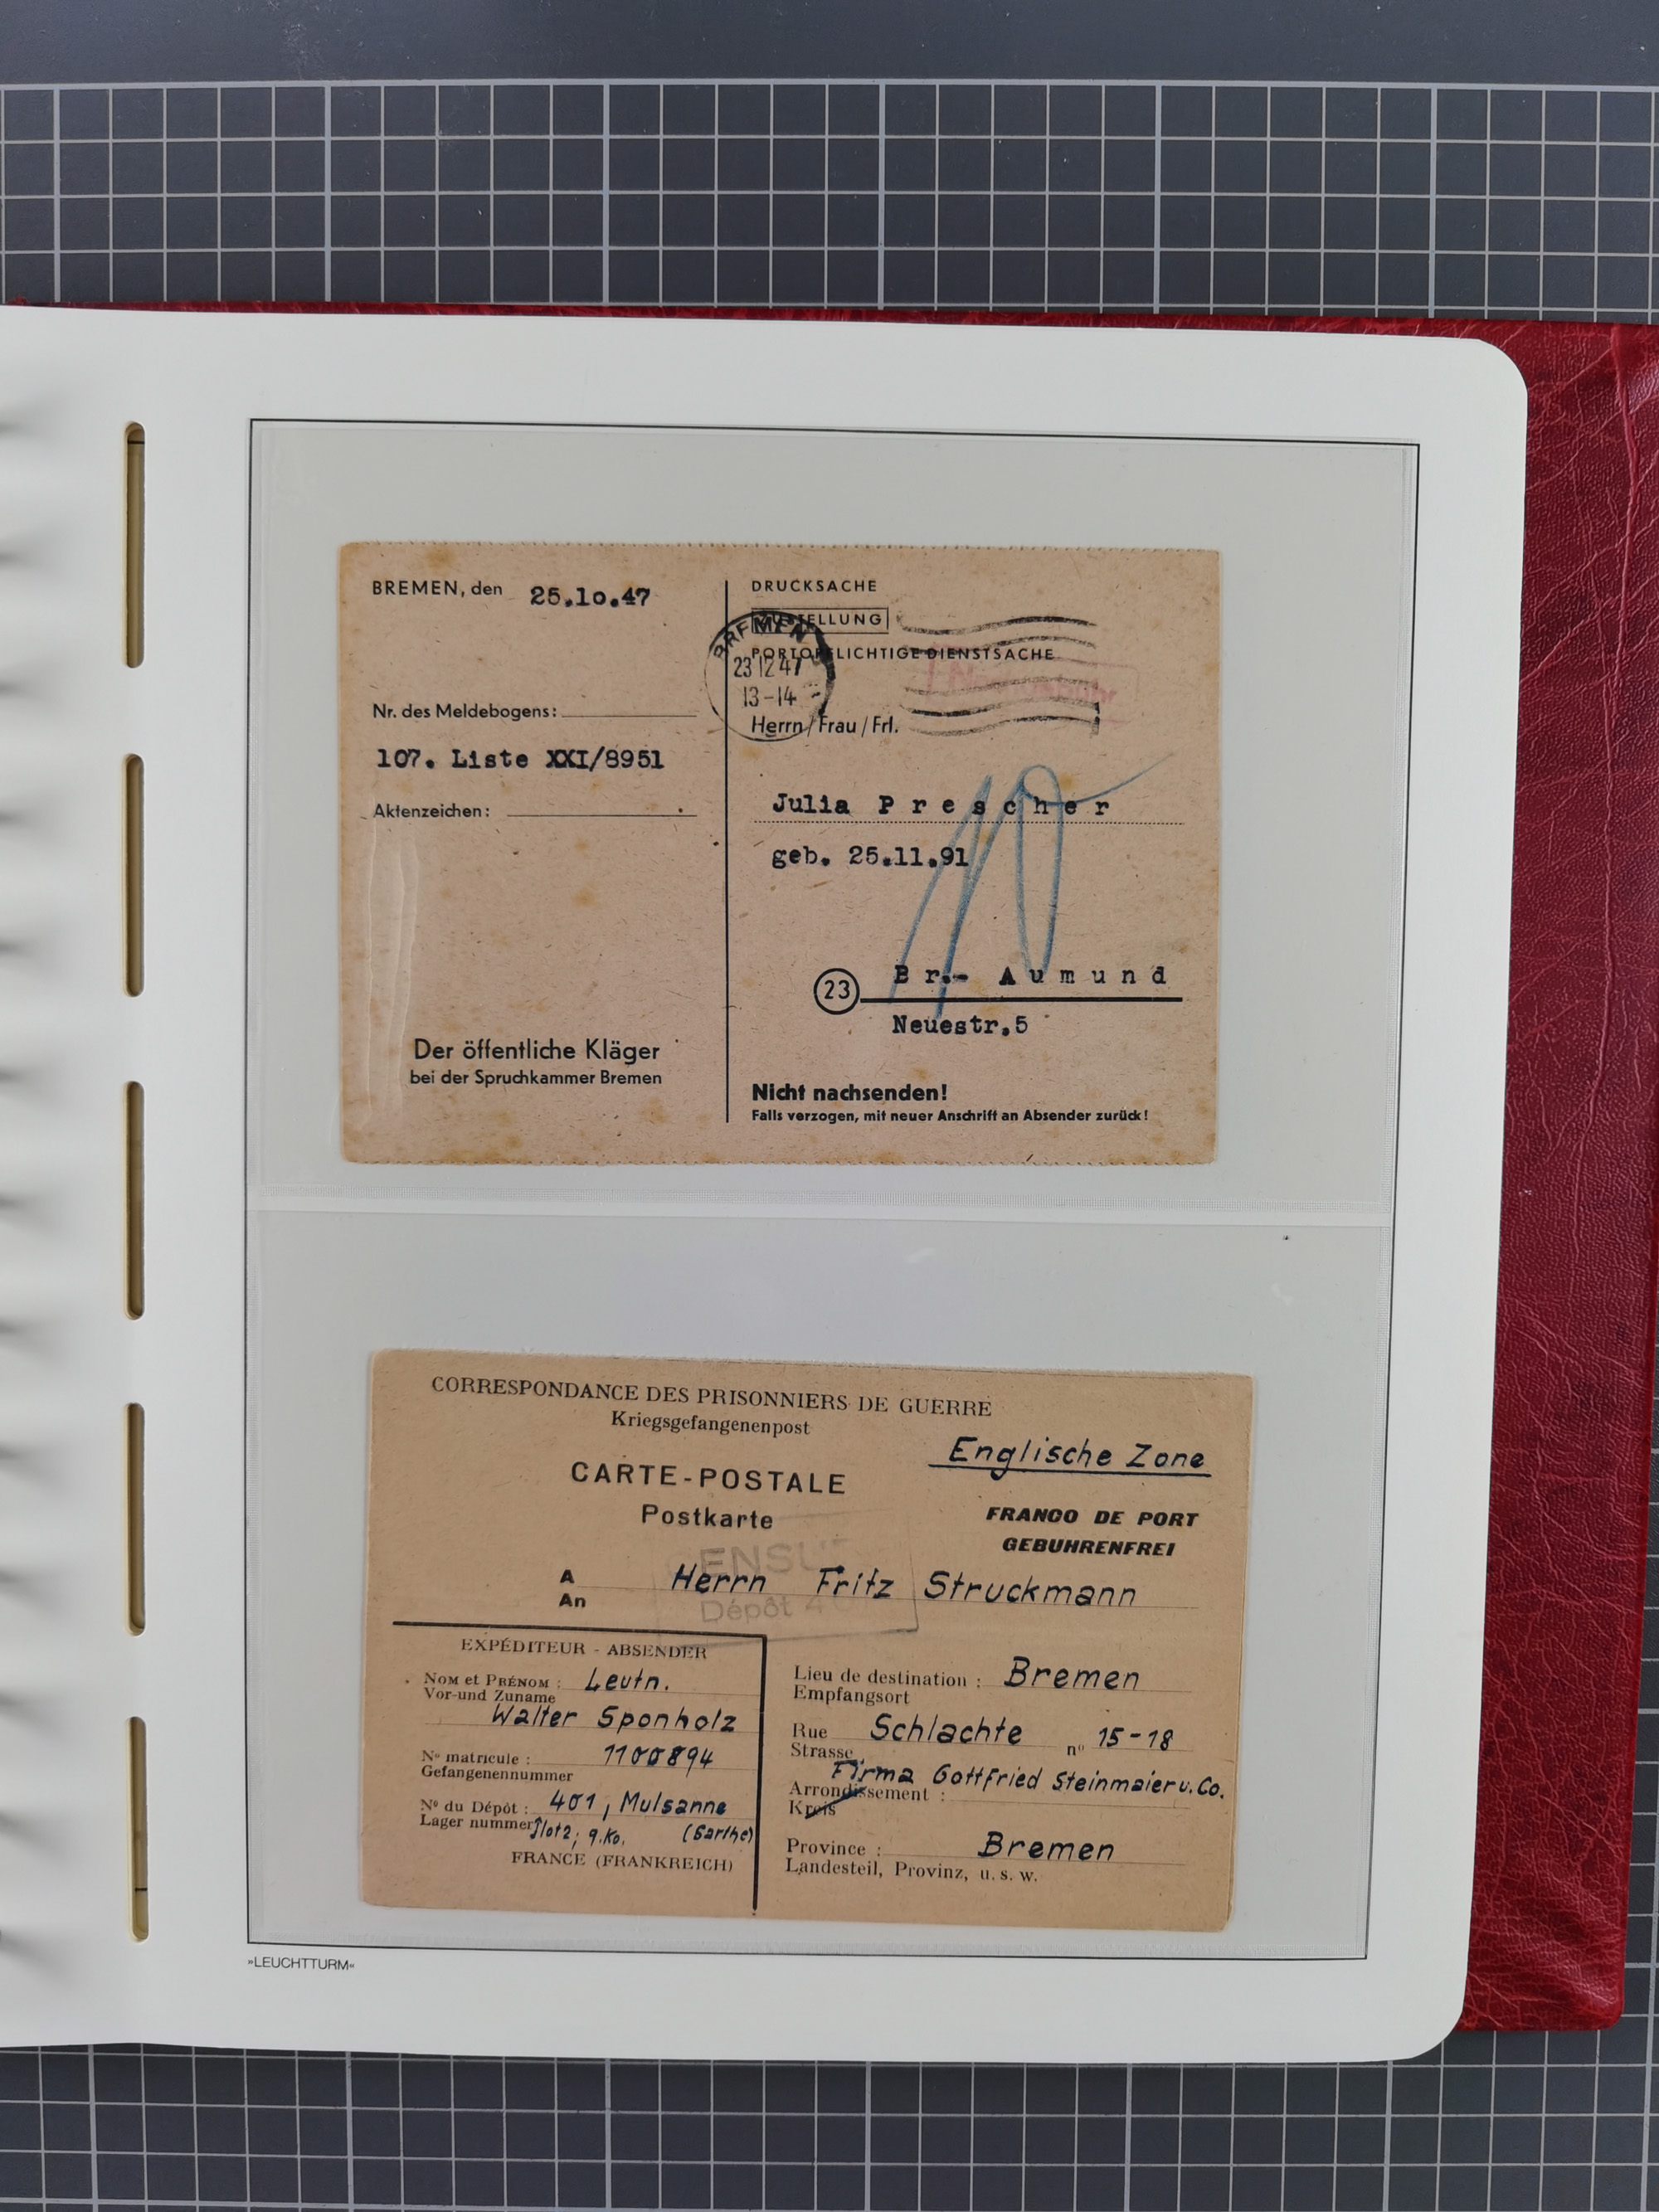 BREMEN, den 25.10.47
Nr. des Meldebogens:
107. Liste XXI/8951
Aktenzeichen:
Der öffentliche Kläger
bei der Spruchkammer Bremen
DRUCKSACHE
ZUSTELLUNG
PORTOPFLICHTIGE DIENSTSACHE
BREMEN
23 12 47
13-14
Herrn/Frau/Frl.
Julia Prescher
geb. 25.11.91
10
23
Br.- Aumund
Neuestr.5
Nicht nachsenden!
Falls verzogen, mit neuer Anschrift an Absender zurück!
CORRESPONDANCE DES PRISONNIERS DE GUERRE
Kriegsgefangenenpost
Englische Zone
CARTE-POSTALE
Postkarte
FRANCO DE PORT
GEBUHRENFREI
A
An
Herrn Fritz Struckmann
Dépôt
EXPÉDITEUR - ABSENDER
NOM et PRÉNOM : Leutn.
Vor-und Zuname
Walter Sponholz
No matricule : 1100894
Gefangenennummer
No du Dépôt : 401, Mulsanne
Lager nummer Jlot 2, 9.Ko. (Sarthe)
FRANCE (FRANKREICH)
Lieu de destination : Bremen
Empfangsort
Rue Schlachte no 15-18
Strasse
Firma Gottfried Steinmaier u. Co.
Arrondissement :
Kreis
Province : Bremen
Landesteil, Provinz, u. s. w.
»LEUCHTTURM«